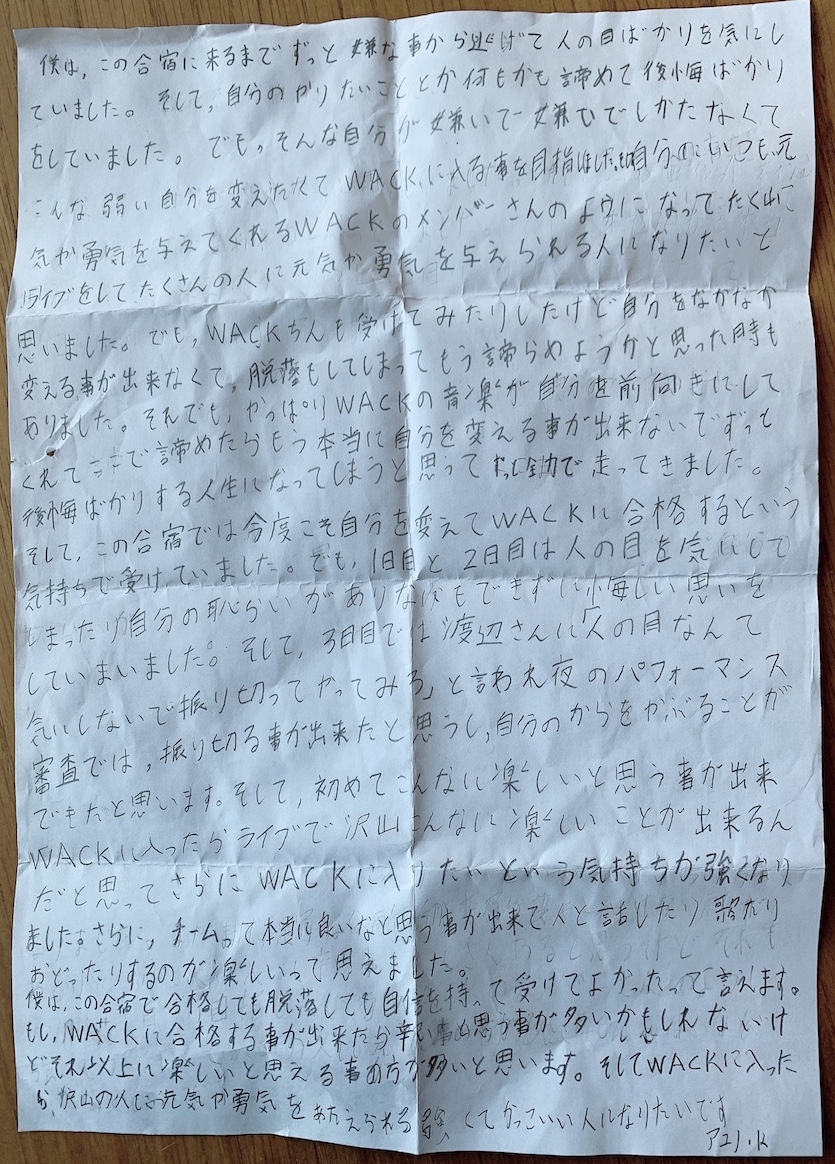 僕は、この合宿に来るまでずっと嫌な事から逃げて人の目ばかりを気にし
ていました。そして、自分のやりたいこととか何もかも諦めて後悔ばかり
をしていました。でも、そんな自分が嫌いで嫌で しかたなくて
こんな弱い自分を変えたくて WACKに入る事を目指しました。 自分の いつも元
気か勇気を与えてくれるWACKのメンバーさんのようになってたく山
ライブをしてたくさんの人に元気か勇気を与えられる人になりたいと
思いました。でも、WACKちんも受けてみたりしたけど自分をなかなか
変える事が出来なくて、脱落もしてしまってもう諦らめようかと思った時も
ありました。それでも、やっぱりWACKの音楽が自分を前向きにして
くれてここで諦めたらもう本当に自分を変える事が出来ないでずって
後悔ばかりする人生になってしまうと思って 全力で走ってきました。
そして、この合宿では今度こそ自分を変えてWACKに合格するという
気持ちで受けていました。でも、1日目と2日目は人の目を気にして
しまったり自分の恥らいがありなにもできずに悔しい思いを
していまいました。そして、3日目では渡辺さんに「人の目なんて
気にしないで振り切ってやってみろ」と言われ夜のパフォーマンス
審査では、振り切る事が出来たと思うし、自分のからをかぶることが
でもたと思います。そして、初めてこんなに楽しいと思う事が出来
WACKに入ったらライブで沢山こんなに楽しいことが出来るん
だと思ってさらにWACKに入りたいという気持ちが強くなり
ました。さらに、チームって本当に良いなと思う事が出来て人と話したり歌たり
おどったりするのが楽しいって思えました。
僕は、この合宿で合格しても脱落しても自信を持って受けてよかったって言えます。
もし、WACKに合格する事が出来たら辛い事 思う事が多いかもしれないけ
どそれ以上に楽しいと思える事の方が多いと思います。そしてWACKに入った
ら、沢山の人に元気か勇気をあたえられる強くてかっこいい人になりたいです
アユ・K